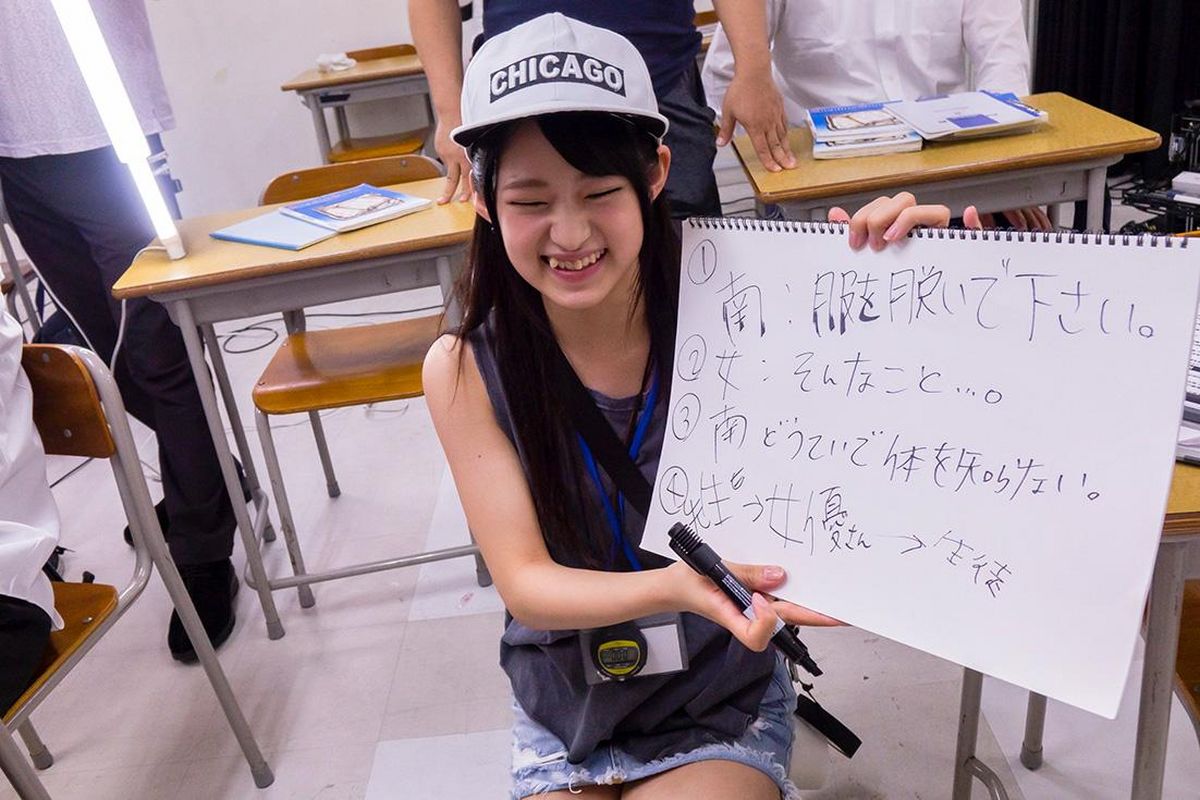 CHICAGO
① 南：服を脱いで下さい。
② 女：そんなこと…。
③ 南 どうていで体を知らない。
④ 先生つ女優さん→生徒